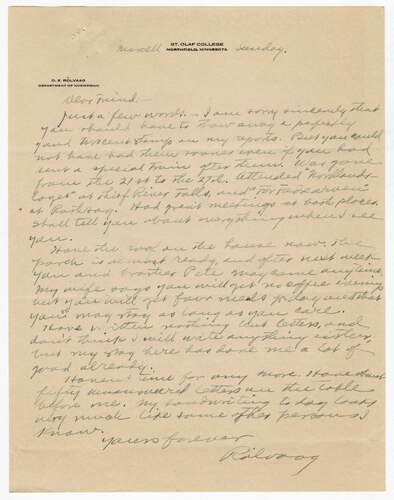 ST. OLAF COLLEGE
NORTHFIELD, MINNESOTA
Marcell Sunday.
O. E. RÖLVAAG
DEPARTMENT OF NORWEGIAN
Dear Friend:-
Just a few words. - I am sorry sincerely that
you should have to throw away a perfectly
good two cent stamp on my reports. But you could
not have had them sooner even if you had
sent a special train after them. Was gone
from the 21st to the 27th. Attended "Nordlands-
laget" at Thief River Falls, and
at . Had great meetings at both places.
Shall tell you about everything when I see
you.
Have the roof on the house now. The
porch is almost ready, and after next week
you and brother Pete may come anytime.
My wife says you will get no
but you will get four meals today and that
you may stay as long as you care.
Have written nothing but letters, and
don't think I will write anything either,
but my stay here has done me a lot of
good already.
Haven't time for any more. Have about
fifty unanswered letters on the table
before me. My handwriting to day looks
very much like some other persons I
know.
Yours forever
Rölvaag